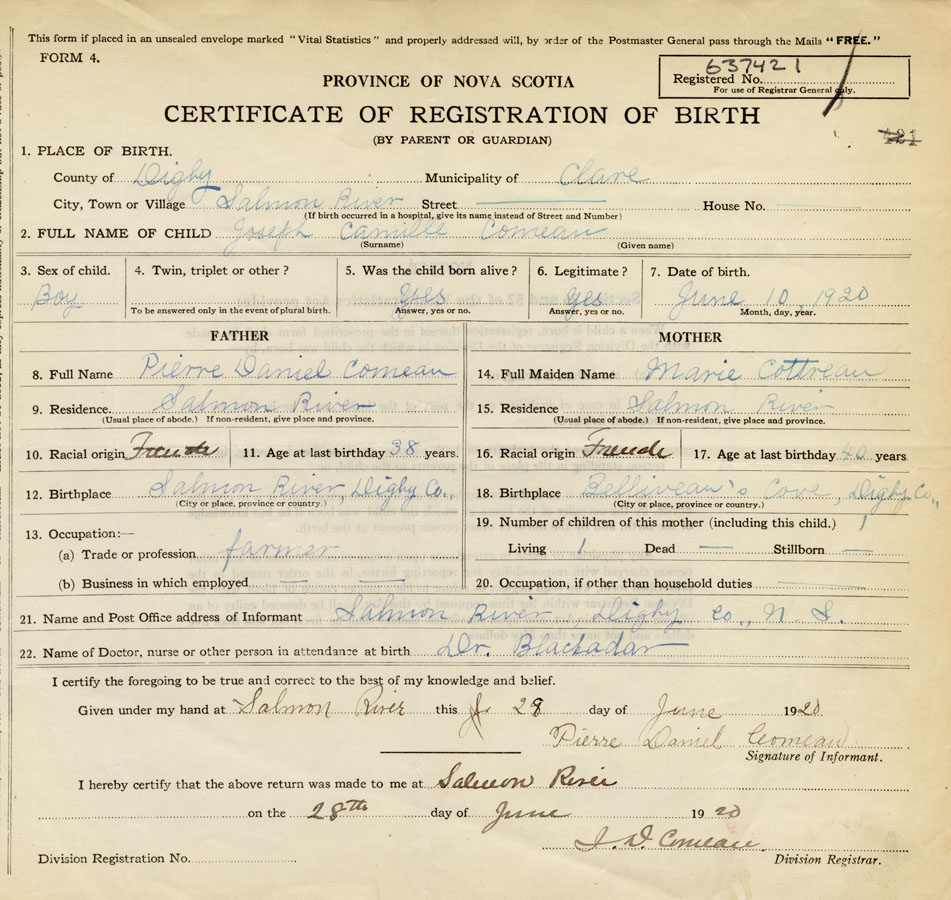 This form if placed in an unsealed envelope marked "Vital Statistics" and properly addressed will, by order of the Postmaster General pass through the Mails "FREE."
FORM 4.
637421
Registered No.
For use of Registrar General only.
PROVINCE OF NOVA SCOTIA
CERTIFICATE OF REGISTRATION OF BIRTH
(BY PARENT OR GUARDIAN)
421
1. PLACE OF BIRTH.
County of Digby Municipality of Clare
City, Town or Village Salmon River Street House No.
(If birth occurred in a hospital, give its name instead of Street and Number)
2. FULL NAME OF CHILD Joseph Camille Comeau
(Surname) (Given name)
3. Sex of child. 4. Twin, triplet or other? 5. Was the child born alive? 6. Legitimate? 7. Date of birth.
Boy Yes Yes June 10, 1920
To be answered only in the event of plural birth. Answer, yes or no. Answer, yes or no. Month, day, year.
FATHER MOTHER
8. Full Name Pierre Daniel Comeau 14. Full Maiden Name Marie Cottreau
9. Residence. Salmon River 15. Residence Salmon River
(Usual place of abode.) If non-resident, give place and province. (Usual place of abode.) If non-resident, give place and province.
10. Racial origin French 11. Age at last birthday 38 years. 16. Racial origin French 17. Age at last birthday 40 years
12. Birthplace Salmon River, Digby Co., 18. Birthplace Belliveau's Cove, Digby Co.,
(City or place, province or country.) (City or place, province or country.)
13. Occupation:— 19. Number of children of this mother (including this child.) 1
(a) Trade or profession farmer Living 1 Dead — Stillborn —
(b) Business in which employed — — 20. Occupation, if other than household duties —
21. Name and Post Office address of Informant Salmon River, Digby Co., N. S.
22. Name of Doctor, nurse or other person in attendance at birth Dr. Blackadar
I certify the foregoing to be true and correct to the best of my knowledge and belief.
Given under my hand at Salmon River this 28 day of June 1920
Pierre Daniel Comeau
Signature of Informant.
I hereby certify that the above return was made to me at Salmon River
on the 28th day of June 1920
J. D. Comeau
Division Registration No. Division Registrar.